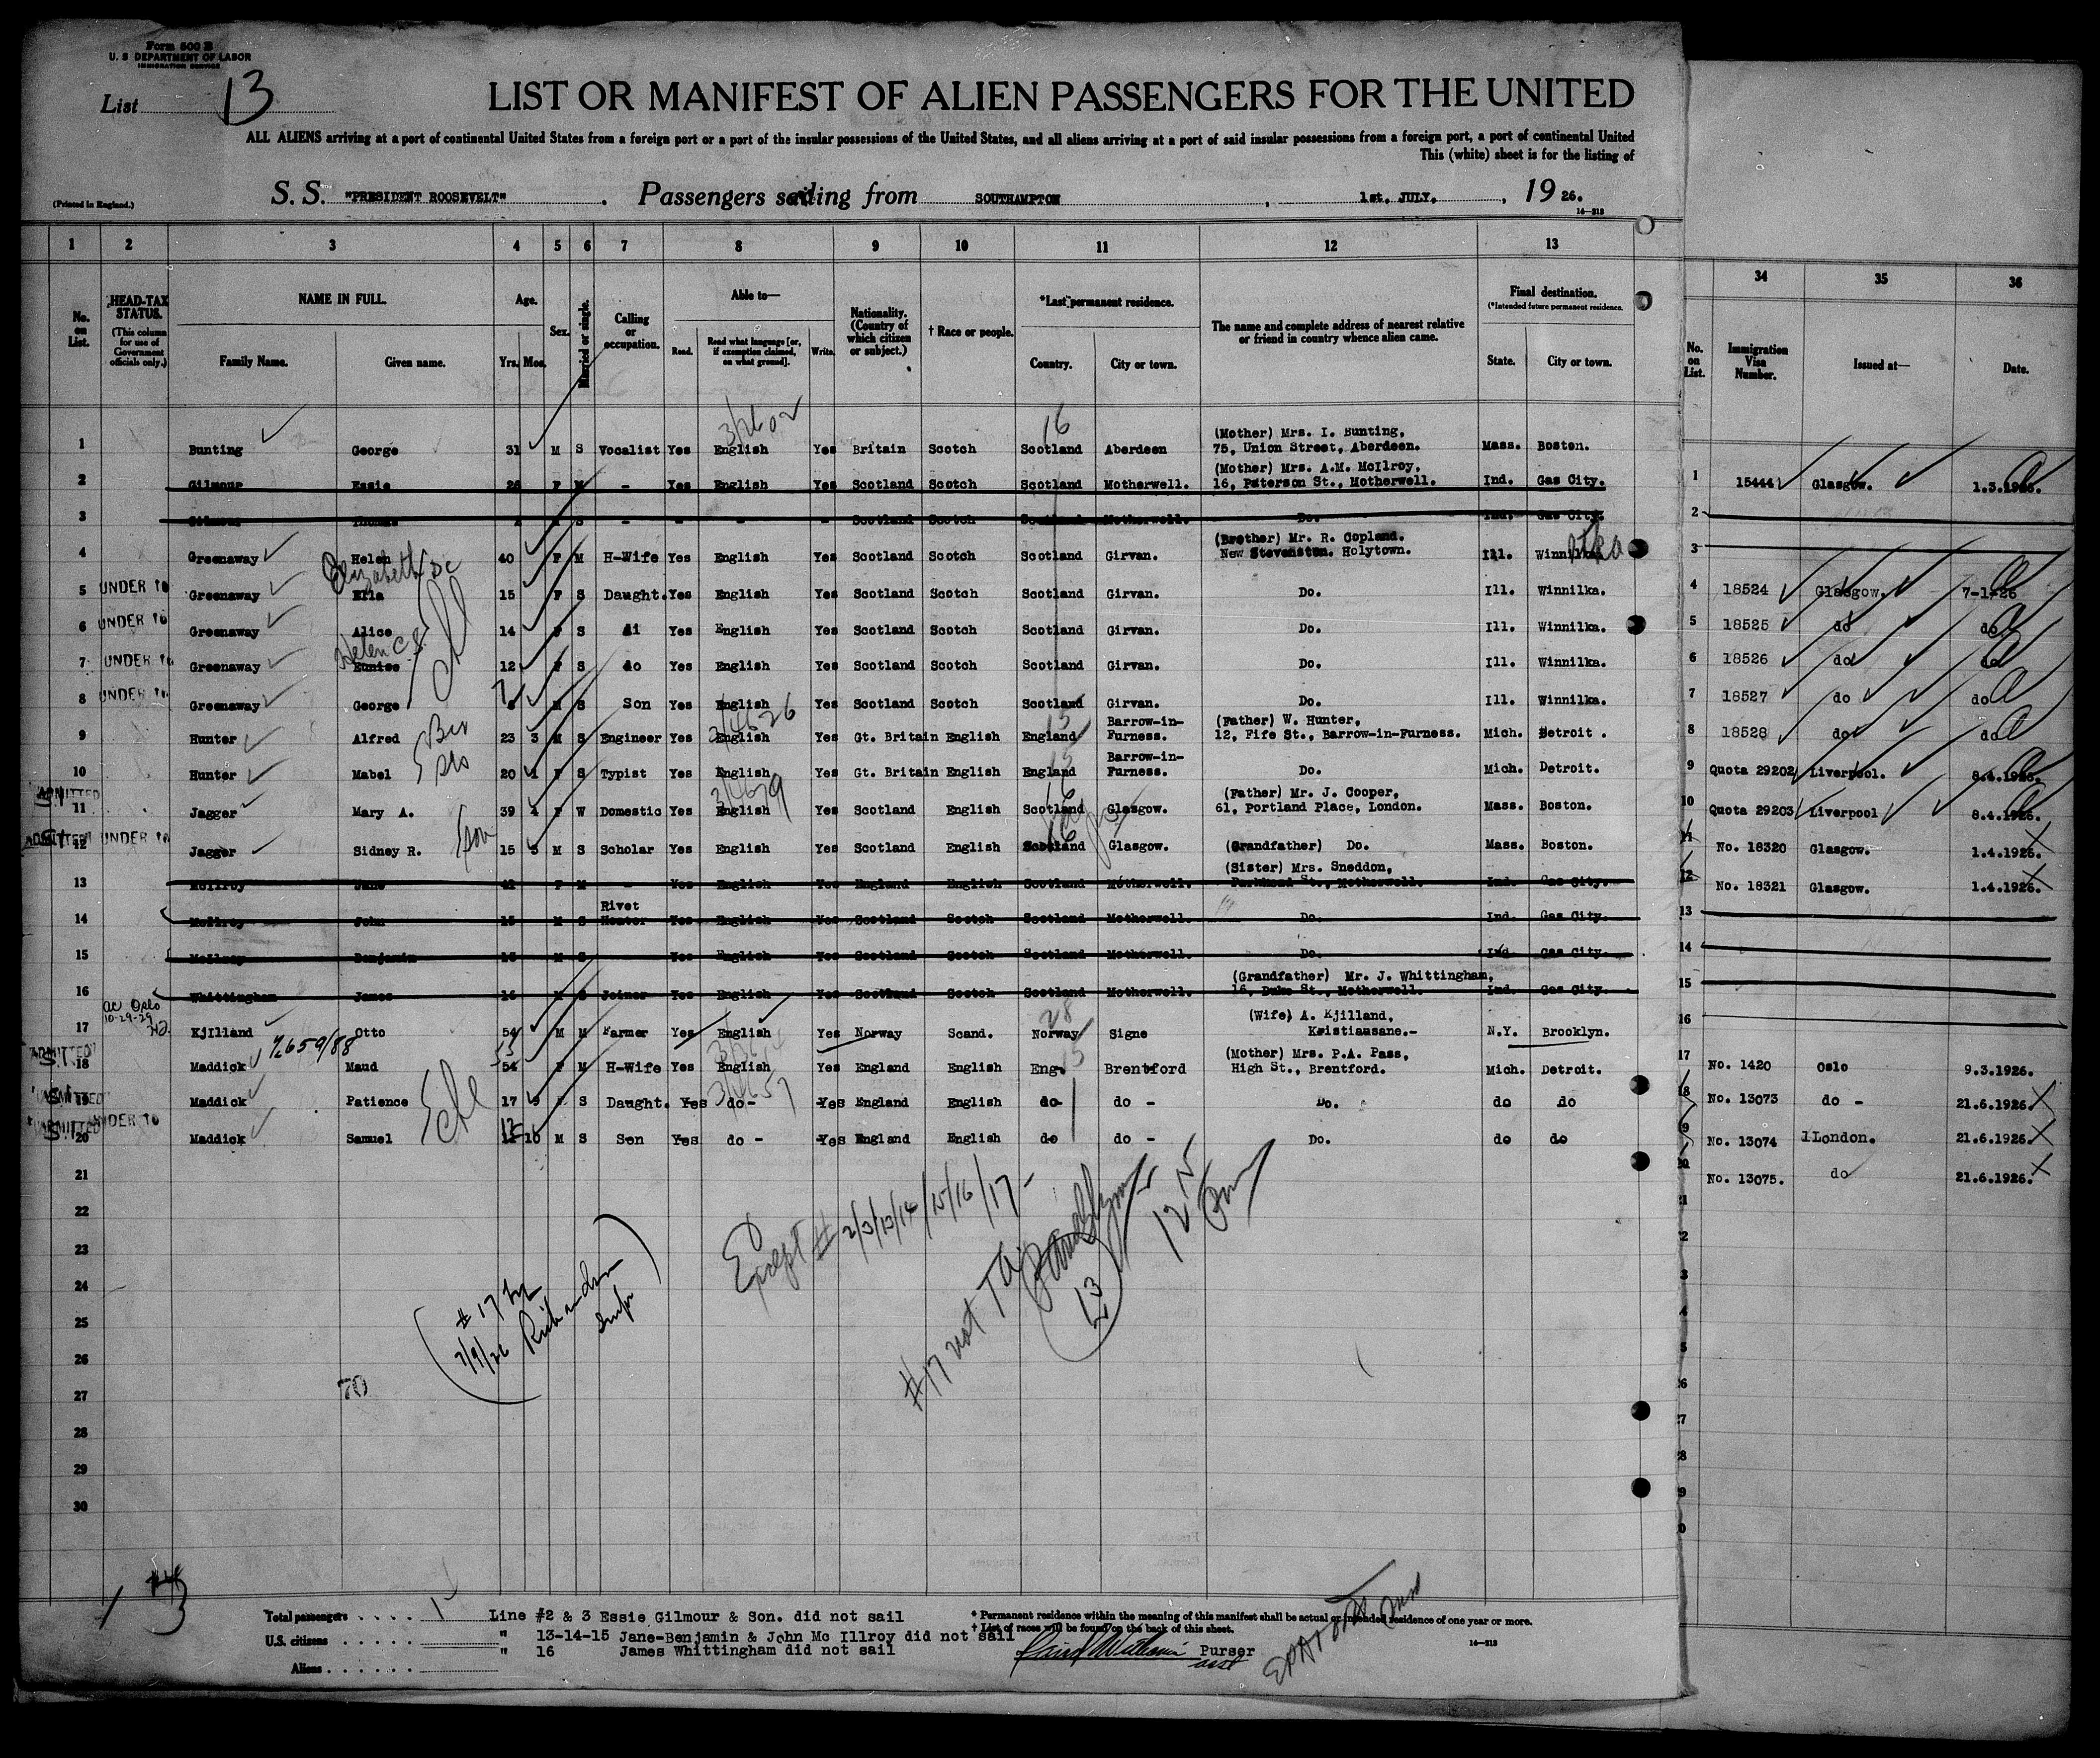 Form 500 B
U. S DEPARTMENT OF LABOR
IMMIGRATION SERVICE
List 13
LIST OR MANIFEST OF ALIEN PASSENGERS FOR THE UNITED
ALL ALIENS arriving at a port of continental United States from a foreign port or a port of the insular possessions of the United States, and all aliens arriving at a port of said insular possessions from a foreign port, a port of continental United
This (white) sheet is for the listing of
(Printed in England.)
S. S. "PRESIDENT ROOSEVELT" . Passengers sailing from SOUTHAMPTON , 1st. JULY. , 19 26.
14—213
1 2 3 4 5 6 7 8 9 10 11 12 13
34 35 36
No. on List.
HEAD-TAX STATUS. (This column for use of Government officials only.)
NAME IN FULL.
Family Name. Given name.
Age. Yrs. Mos.
Sex.
Married or single.
Calling or occupation.
Able to—
Read. Read what language [or, if exemption claimed, on what ground]. Write.
Nationality. (Country of which citizen or subject.)
† Race or people.
*Last permanent residence.
Country. City or town.
The name and complete address of nearest relative or friend in country whence alien came.
Final destination.
(*Intended future permanent residence.
State. City or town.
No. on List.
Immigration Visa Number.
Issued at—
Date.
16
(Mother) Mrs. I. Bunting,
1 Bunting George 31 M S Vocalist Yes English Yes Britain Scotch Scotland Aberdeen 75, Union Street, Aberdeen. Mass. Boston.
(Mother) Mrs. A.M. McIlroy,
2 Gilmour Essie 26 F M - Yes English Yes Scotland Scotch Scotland Motherwell. 16, Paterson St., Motherwell. Ind. Gas City.
3 Gilmour Thomas S - - - - Scotland Scotch Scotland Motherwell. Do. Ind. Gas City.
(Brother) Mr. R. Copland.
4 Greenaway Helen 40 F M H-Wife Yes English Yes Scotland Scotch Scotland Girvan. New Stevenston. Holytown. Ill. Winnilka.
Elizabeth
5 UNDER 16 Greenaway Ella 15 F S Daught. Yes English Yes Scotland Scotch Scotland Girvan. Do. Ill. Winnilka.
6 UNDER 16 Greenaway Alice 14 F S di Yes English Yes Scotland Scotch Scotland Girvan. Do. Ill. Winnilka.
Helen C.
7 UNDER 16 Greenaway Eunise 12 F S do Yes English Yes Scotland Scotch Scotland Girvan. Do. Ill. Winnilka.
8 UNDER 16 Greenaway George 7 M S Son Yes English Yes Scotland Scotch Scotland Girvan. Do. Ill. Winnilka.
Barrow-in- (Father) W. Hunter,
9 Hunter Alfred 23 3 M S Engineer Yes English Yes Gt. Britain English England Furness. 12, Fife St., Barrow-in-Furness. Mich. Detroit .
Bro
Sis
Barrow-in-
10 Hunter Mabel 20 1 F S Typist Yes English Yes Gt. Britain English England Furness. Do. Mich. Detroit.
(Father) Mr. J. Cooper,
ADMITTED
11 Jagger Mary A. 39 4 F W Domestic Yes English Yes Scotland English Scotland Glasgow. 61, Portland Place, London. Mass. Boston.
son
ADMITTED
12 UNDER 16 Jagger Sidney R. 15 5 M S Scholar Yes English Yes Scotland English Scotland Glasgow. (Grandfather) Do. Mass. Boston.
(Sister) Mrs. Sneddon,
13 McIlroy Jane 41 F M - Yes English Yes England English Scotland Motherwell. Parkhead St., Motherwell. Ind. Gas City.
Rivet
14 McIlroy John M S Heater Yes English Yes Scotland Scotch Scotland Motherwell. Do. Ind. Gas City.
15 McIlroy Benjamin M S Yes English Yes Scotland Scotch Scotland Motherwell. Do. Ind. Gas City.
(Grandfather) Mr. J. Whittingham,
16 Whittingham James 16 M S Joiner Yes English Yes Scotland Scotch Scotland Motherwell. 16, Duke St., Motherwell. Ind. Gas City.
10-29-29
28
(Wife) A. Kjilland,
17 Kjilland Otto 54 M M Farmer Yes English Yes Norway Scand. Norway Signe Kristiansane.- N.Y. Brooklyn.
(Mother) Mrs. P.A. Pass,
ADMITTED
18 Maddick Maud 54 F M H-Wife Yes English Yes England English Eng. Brentford High St., Brentford. Mich. Detroit.
ADMITTED
19 Maddick Patience 17 9 F S Daught. Yes do- Yes England English do- do - Do. do do
ADMITTED UNDER 16
20 Maddick Samuel 10 M S Son Yes do - Yes England English do do - Do. do do
21
22
23
24
25
26
27
28
29
30
1 15444 Glasgow. 1.3.1926.
2
3
4 18524 Glasgow. 7-1-26
5 18525 do do
6 18526 do do
7 18527 do do
8 18528 do do
9 Quota 29202 Liverpool. 8.4.1926.
10 Quota 29203 Liverpool 8.4.1926.
11 No. 18320 Glasgow. 1.4.1926.
12 No. 18321 Glasgow. 1.4.1926.
13
14
15
16
17 No. 1420 Oslo 9.3.1926.
18 No. 13073 do - 21.6.1926.
No. 13074 London. 21.6.1926.
No. 13075. do 21.6.1926.
Except # 2/3/13/14/15/16/17-
#17 not
13
(#17 by
7/9/26 Richardson
Insp)
70
Total passengers . . . .
U.S. citizens . . . . .
Aliens . . . . . .
Line #2 & 3 Essie Gilmour & Son. did not sail
" 13-14-15 Jane-Benjamin & John Mc Illroy did not sail
" 16 James Whittingham did not sail
* Permanent residence within the meaning of this manifest shall be actual or intended residence of one year or more.
† List of races will be found on the back of this sheet.
Purser
asst
14—213